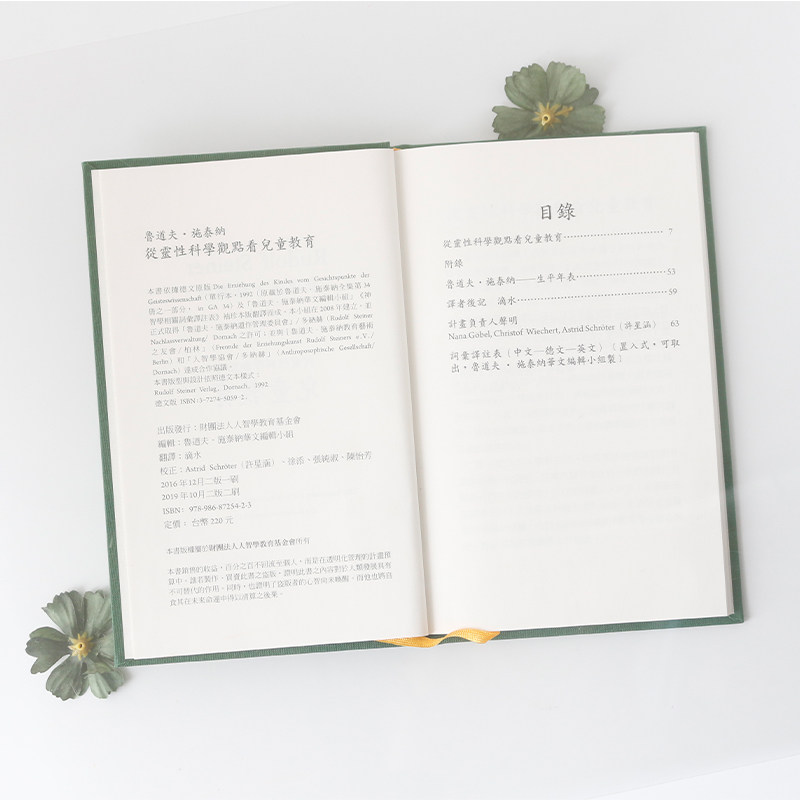 魯道夫・施泰納
從靈性科學觀點看兒童教育
本書依據德文原版 Die Erziehung des Kindes vom Gesichtspunkte der
Geisteswissenschaft（單行本，1992（原屬於魯道夫．施泰納全集第34
冊之一部分， in GA 34）及「魯道夫．施泰納華文編輯小組」《神
智學相關詞彙譯註表》袖珍本版翻譯而成。本小組在2008年建立，並
正式取得「魯道夫．施泰納遺作管理委員會」/ 多納赫（Rudolf Steiner
Nachlassverwaltung/ Dornach 之許可；並與「魯道夫．施泰納教育藝術
之友會 / 柏林」（Freunde der Erziehungskunst Rudolf Steiners e.V./
Berlin）和「人智學協會 / 多納赫」（Anthroposophische Gesellschaft/
Dornach）達成合作協議。
本書版型與設計依照德文本樣式：
Rudolf Steiner Verlag, Dornach, 1992
德文版 ISBN :3-7274-5059-2。
出版發行：財團法人人智學教育基金會
編輯：魯道夫．施泰納華文編輯小組
翻譯：滴水
校正：Astrid Schröter（許星涵）、涂浴、張純淑、陳怡芳
2016 年12月二版一刷
2019 年10月二版二刷
ISBN：978-986-87254-2-3
定價：台幣 220 元
本書版權屬於財團法人人智學教育基金會所有
目錄
從靈性科學觀點看兒童教育………………………… 7
附錄
魯道夫・施泰納——生平年表………………………53
譯者後記　滴水………………………………………59
計畫負責人聲明
Nana Göbel, Christof Wiechert, Astrid Schröter（許星涵） 63
詞彙譯註表（中文—德文—英文）〔置入式，可取
出，魯道夫・施泰納華文編輯小組製〕